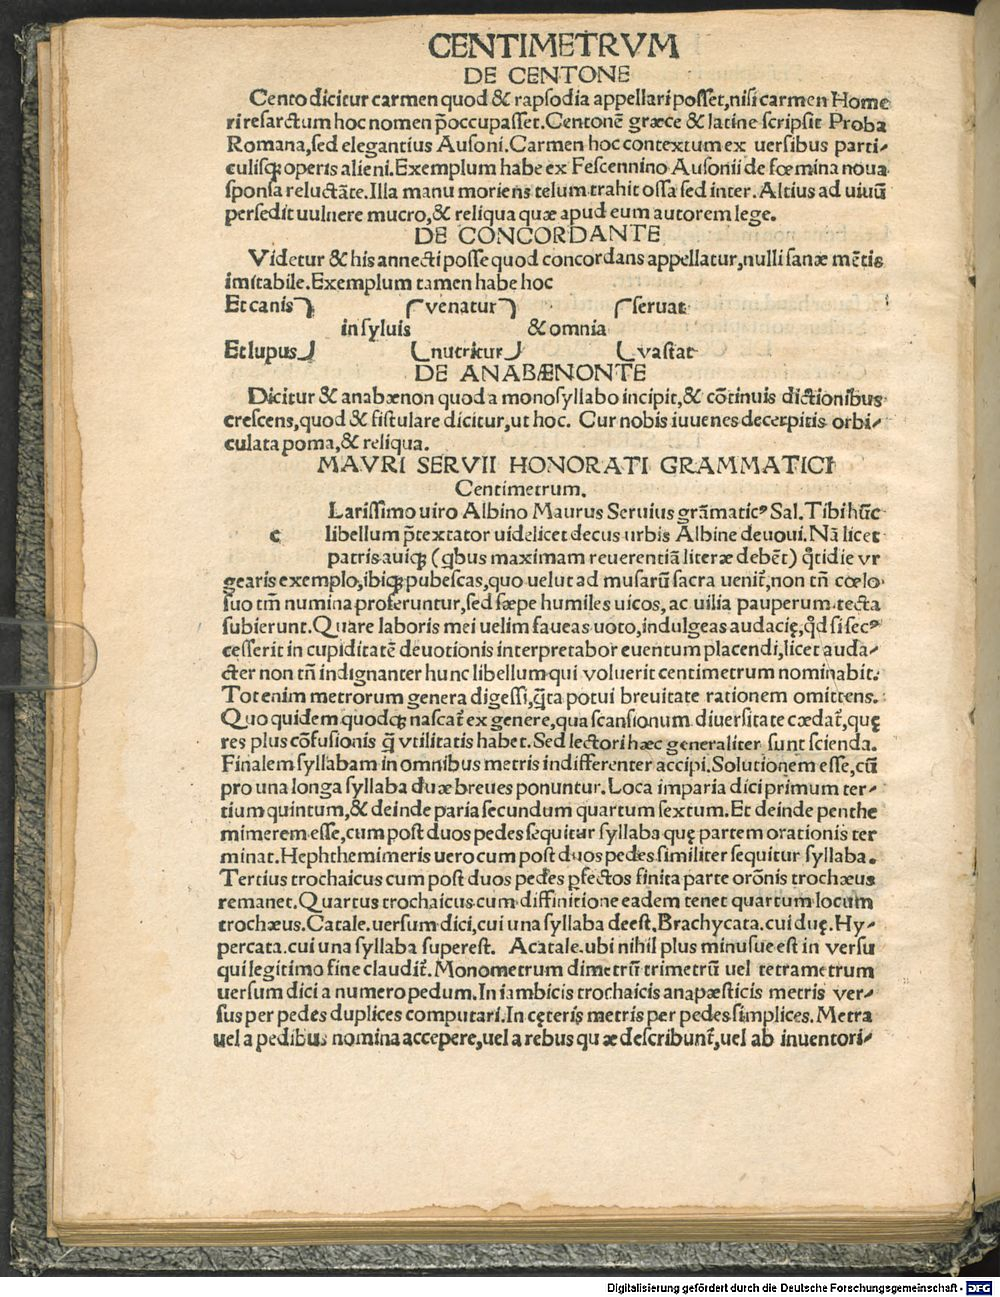 CENTIMETRVM
DE CENTONE
Cento dicitur carmen quod & rapsodia appellari posset,nisi carmen Home
ri resarctum hoc nomen p̄occupasset.Centonē græce & latine scripsit Proba
Romana,sed elegantius Ausoni.Carmen hoc contextum ex uersibus parti⸗
culisqꝫ operis alieni.Exemplum habe ex Fescennino Ausonii de fœmina noua
sponsa reluctāte.Illa manu moriens telum trahit ossa sed inter.Altius ad uiuū
persedit uulnere mucro,& reliqua quæ apud eum autorem lege.
DE CONCORDANTE
Videtur & his annecti posse quod concordans appellatur,nulli sanæ mētis
imitabile.Exemplum tamen habe hoc
Et canis venatur seruat
in syluis & omnia
Et lupus nutritur vastat
DE ANABÆNONTE
Dicitur & anabænon quod a monosyllabo incipit,& cōtinuis dictionibus
crescens,quod & fistulare dicitur,ut hoc. Cur nobis iuuenes decerpitis orbi⸗
culata poma,& reliqua.
MAVRI SERVII HONORATI GRAMMATICI
Centimetrum.
c Larissimo uiro Albino Maurus Seruius grāmaticꝰ Sal.Tibi hūc
libellum p̄textator uidelicet decus urbis Albine deuoui.Nā licet
patris auiqꝫ (qbus maximam reuerentiā literæ debēt) qtidie vr
gearis exemplo,ibiqꝫ pubescas,quo uelut ad musarū sacra uenit̄,non tn̄ cœlo
suo tm̄ numina proferuntur,sed sæpe humiles uicos, ac uilia pauperum tecta
subierunt.Quare laboris mei uelim faueas uoto,indulgeas audacię,qd si secꝰ
cesserit in cupiditatē deuotionis interpretabor euentum placendi,licet auda⸗
cter non tn̄ indignanter hunc libellum qui voluerit centimetrum nominabit.
Tot enim metrorum genera digessi,q̄ta potui breuitate rationem omittens.
Quo quidem quodqꝫ nascat̄ ex genere,qua scansionum diuersitate cædat̄,quę
res plus cōfusionis q̄ vtilitatis habet.Sed lectori hæc generaliter sunt scienda.
Finalem syllabam in omnibus metris indifferenter accipi.Solutionem esse,cū
pro una longa syllaba duæ breues ponuntur.Loca imparia dici primum ter⸗
tium quintum,& deinde paria secundum quartum sextum.Et deinde penthe
mimerem esse,cum post duos pedes sequitur syllaba quę partem orationis ter
minat.Hephthemimeris uero cum post duos pedes similiter sequitur syllaba.
Tertius trochaicus cum post duos pedes pfectos finita parte orōnis trochæus
remanet.Quartus trochaicus cum diffinitione eadem tenet quartum locum
trochæus.Catale.uersum dici,cui una syllaba deest.Brachycata.cui duę.Hy⸗
percata.cui una syllaba superest. Acatale.ubi nihil plus minusue est in versu
qui legitimo fine claudit̄.Monometrum dimetrū trimetrū uel tetrametrum
uersum dici a numero pedum.In iambicis trochaicis anapæsticis metris ver⸗
sus per pedes duplices computari.In cęteris metris per pedes simplices.Metra
uel a pedibus nomina accepere,uel a rebus quæ describunt̄,uel ab inuentori⸗
Digitalisierung gefördert durch die Deutsche Forschungsgemeinschaft - DFG